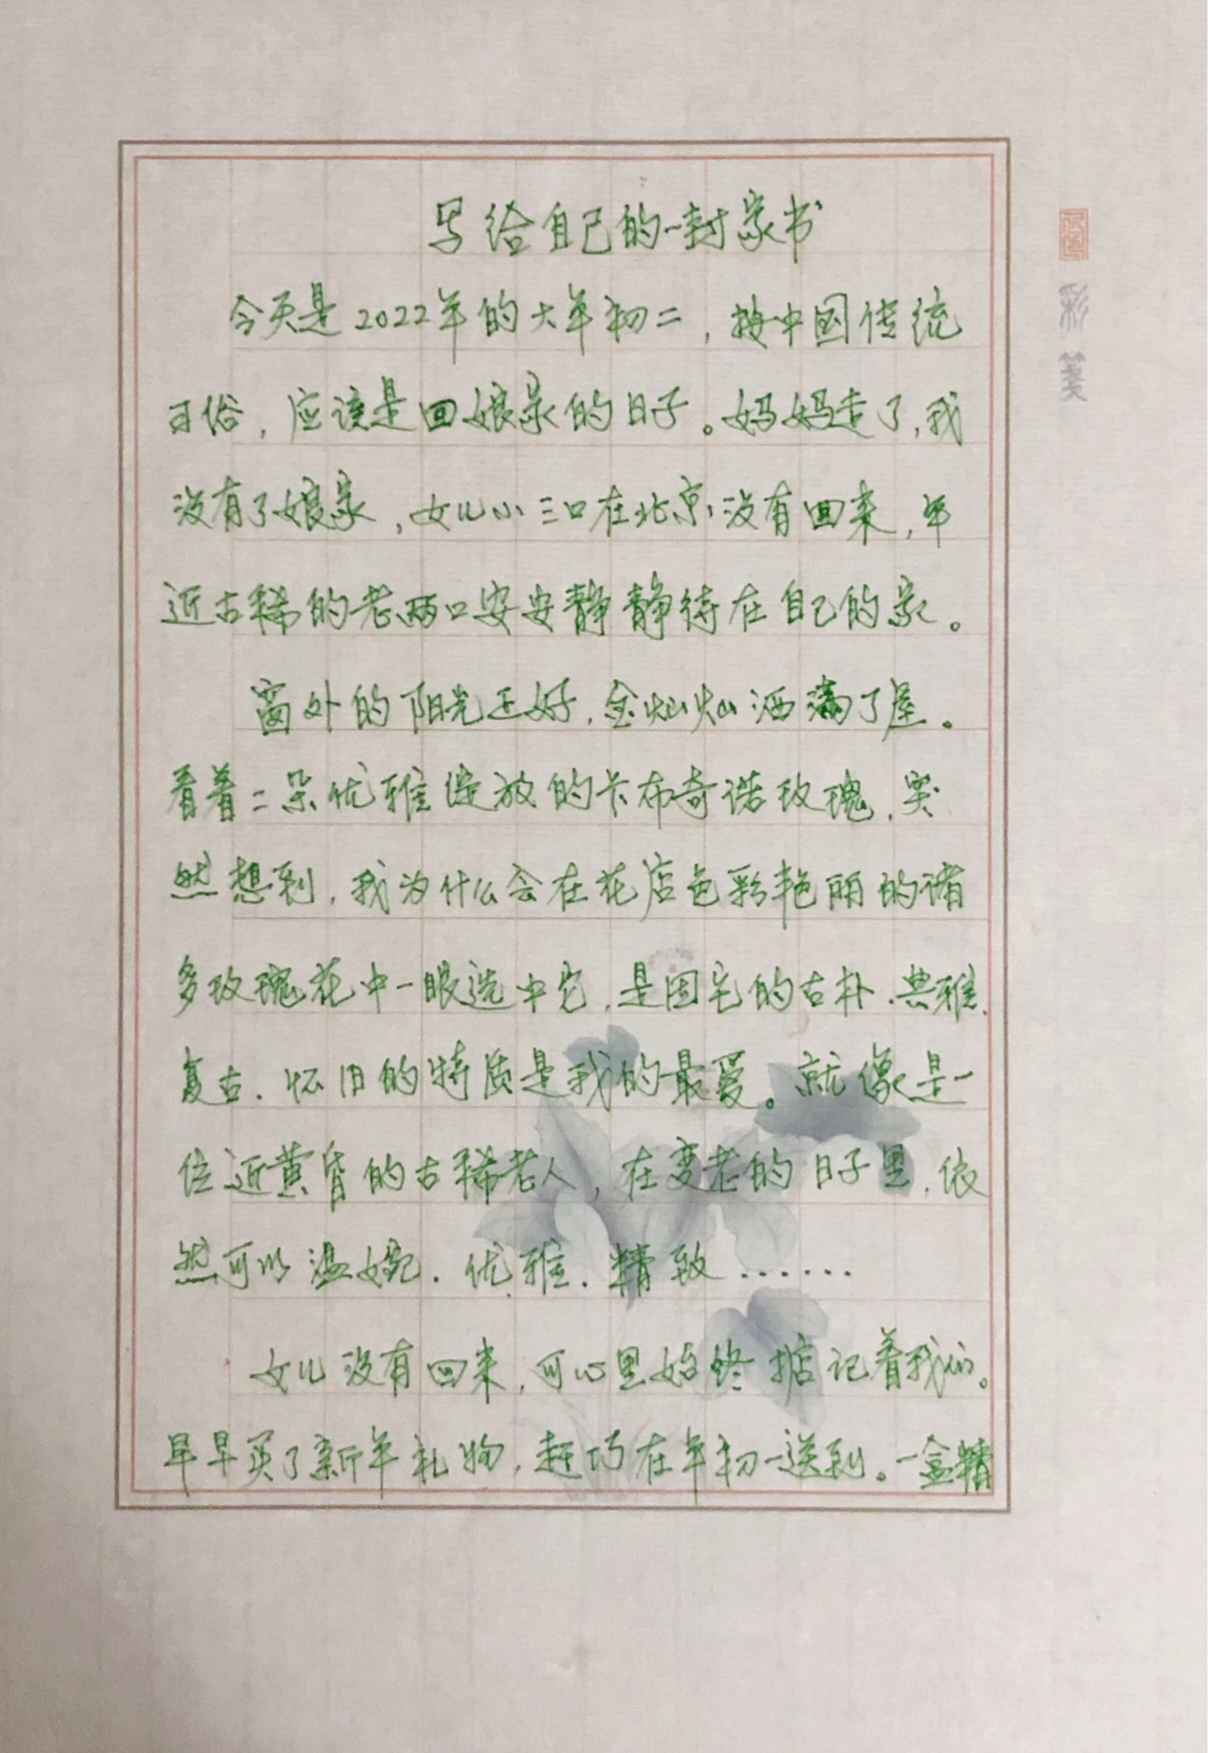 写给自己的一封家书
今天是2022年的大年初二，按中国传统
习俗，应该是回娘家的日子。妈妈走了，我
没有了娘家，女儿小三口在北京没有回来，年
近古稀的老两口安安静静待在自己的家。
窗外的阳光正好，金灿灿洒满了屋。
看着二朵优雅绽放的卡布奇诺玫瑰，突
然想到，我为什么会在花店色彩艳丽的诸
多玫瑰花中一眼选中它，是因它的古朴、典雅、
复古、怀旧的特质是我的最爱。就像是一
位近黄昏的古稀老人，在变老的日子里，依
然可以温婉、优雅、精致……
女儿没有回来，可心里始终掂记着我们。
早早买了新年礼物，赶巧在年初一送到。一盒精
彩笺